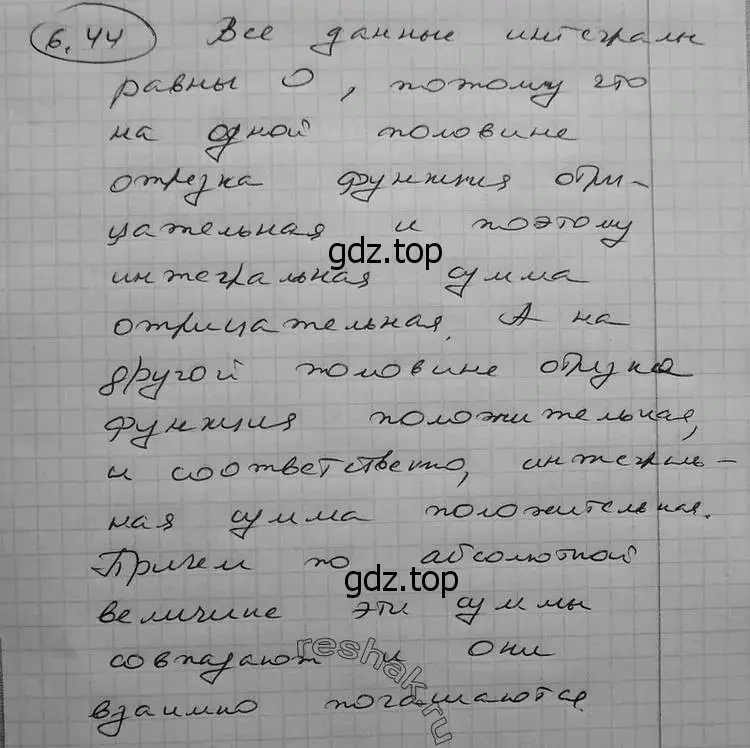 6.44 Все данные интегралы
равны 0, потому что
на одной половине
отрезка функция отри-
цательная и поэтому
gdz.top
интегральная сумма
отрицательная. А на
другой половине отрезка
функция положительная,
и соответственно, интеграль-
ная сумма положительная.
Причем по абсолютной
gdz.top
величине эти суммы
совпадают и они
reshak.ru
взаимно погашаются.